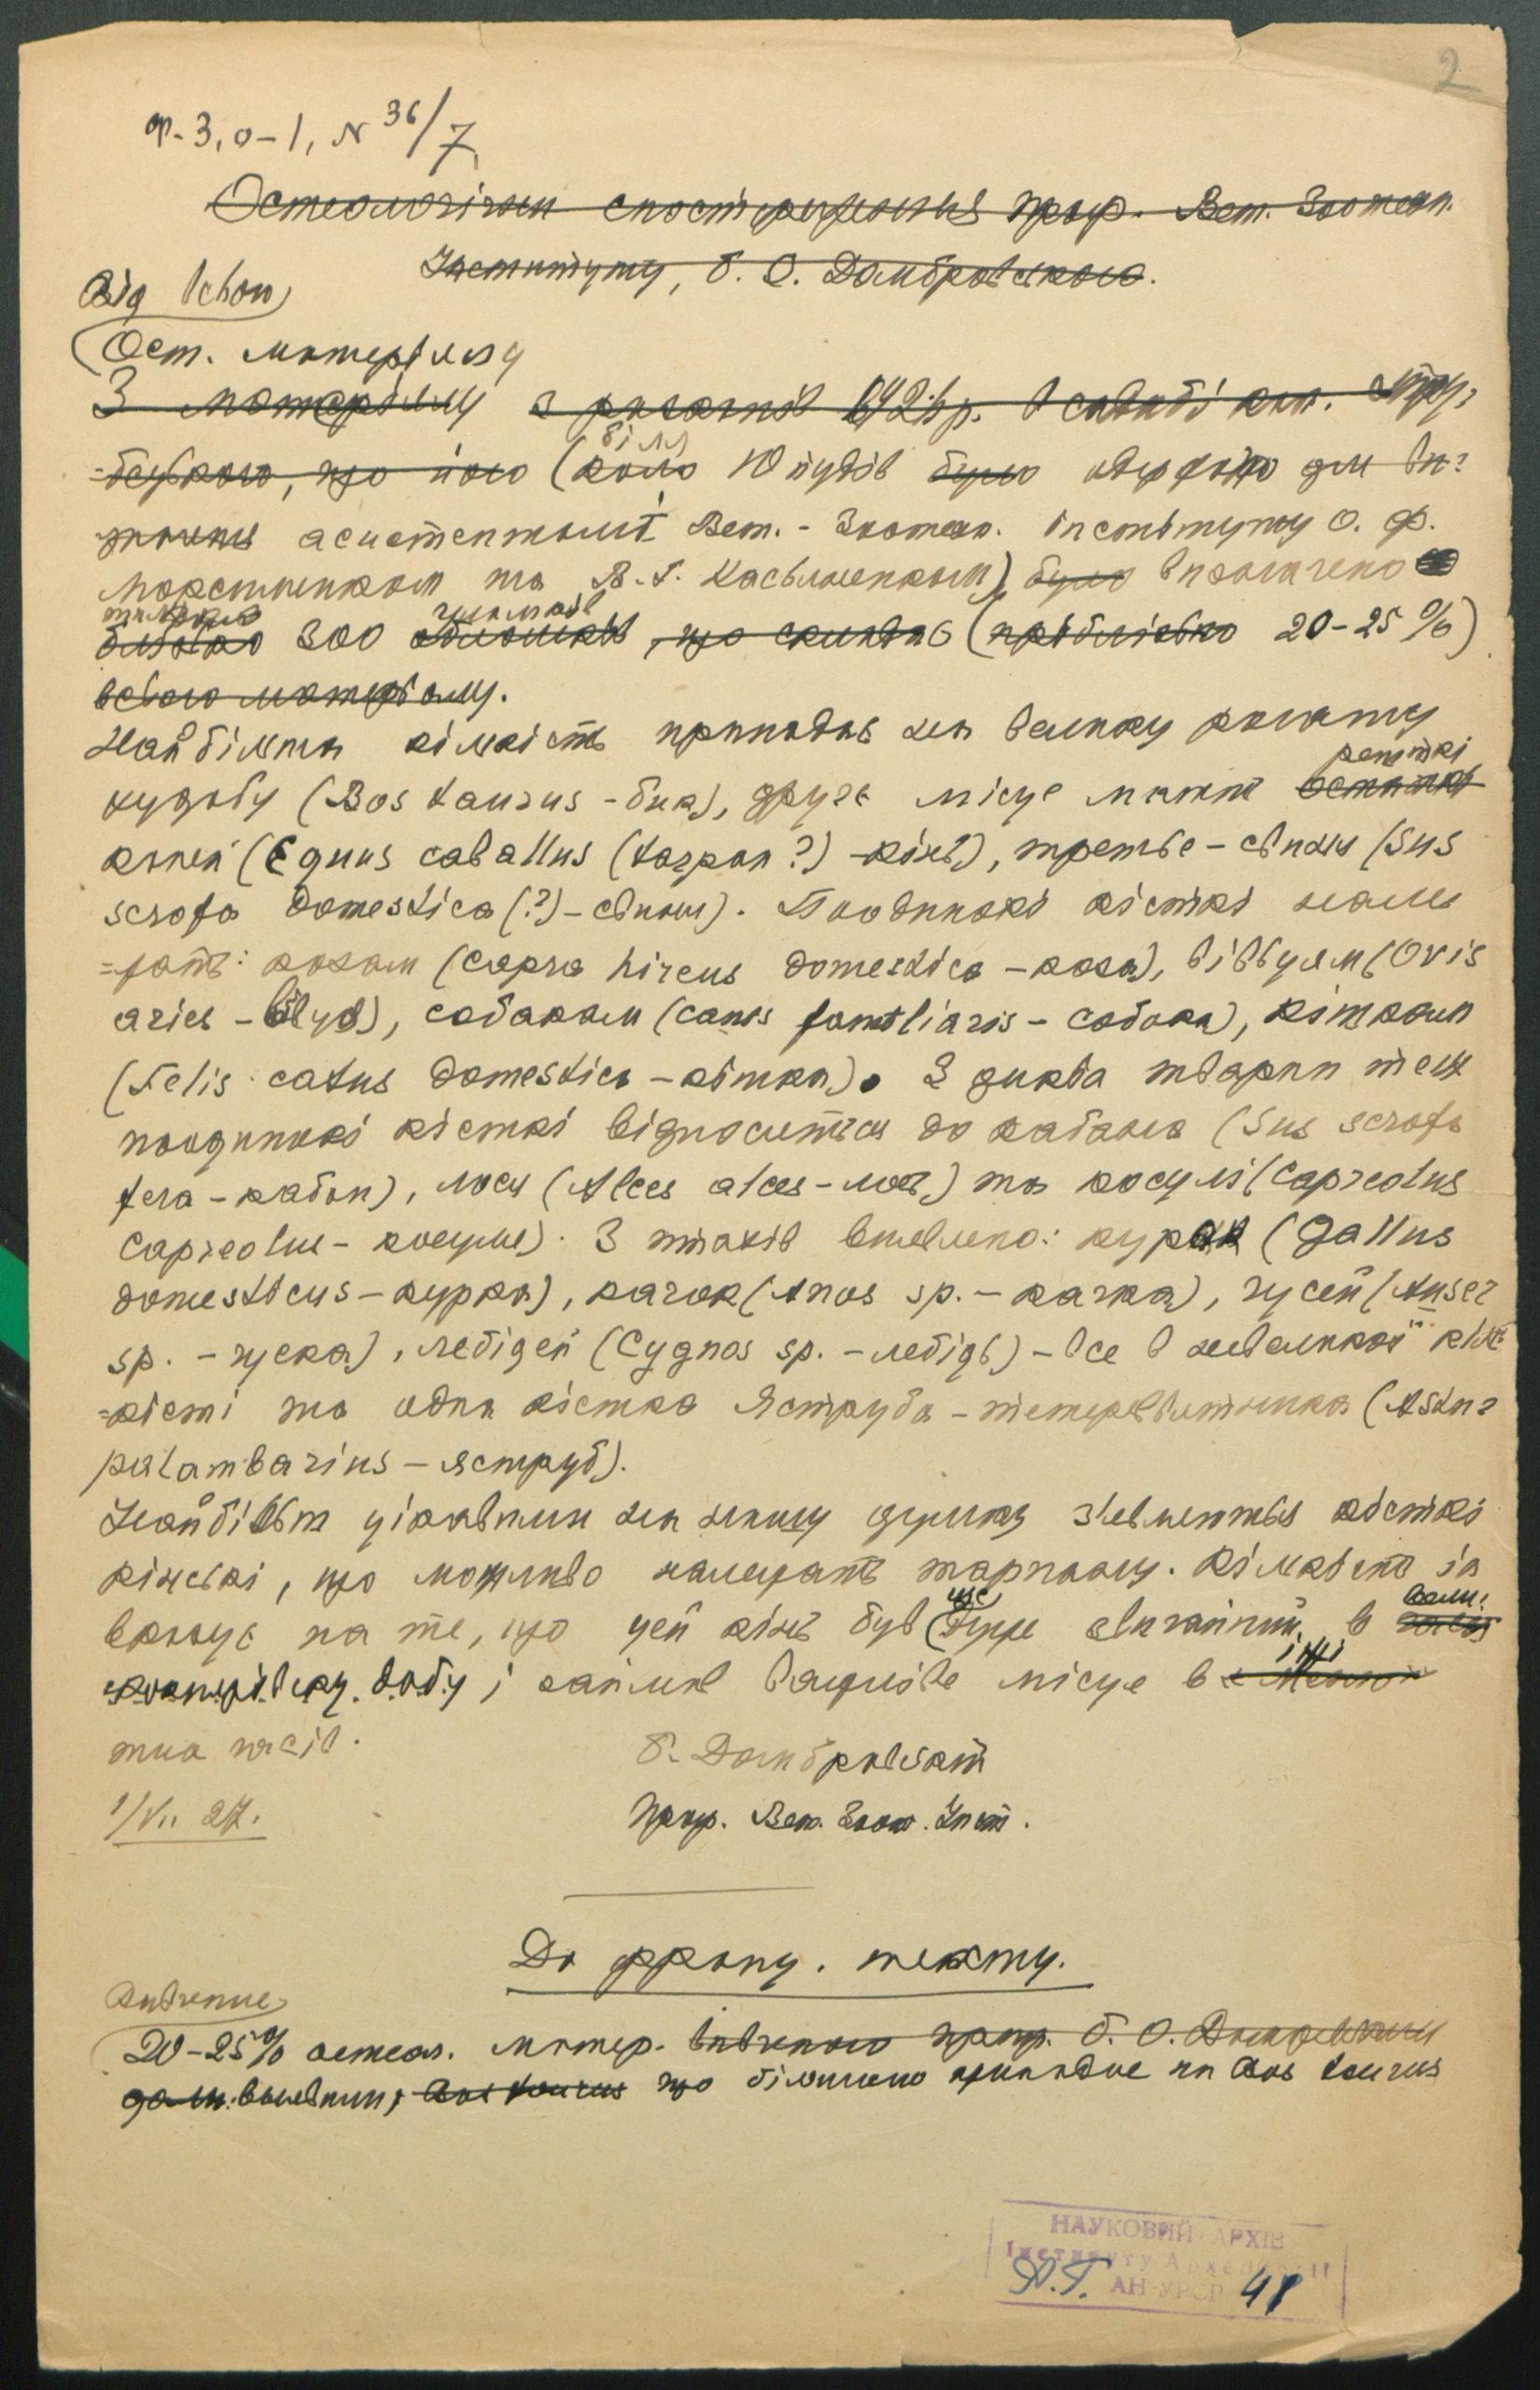 2
Ф-3, о-1, N 36/7
Остеологічні спостереження проф. Вет. Зоотехн.
Інституту, Б. О. Домбровського.
Від всього
(Ост. матеріялу
З матеріялу з розкопів 1924 р. в садибі
що його (коло біля 10 пудів було одержано для ви-
асистентами Вет.-Зоотехн. інституту О. Ф.
та В. Г. Касьяненком) було визначено
300 уламків, що складає (приблизно 20-25%)
всього матеріялу.
Найбільша кількість припадає на велику рогату
худобу (Bos taurus - бик), друге місце мають рештки
коней (Equus caballus (tarpan?) - кінь), третьє - свиня (Sus
scrofa domestica (?) - свиня). Поодинокі кістки нале-
=жать: козам (Capra hircus domestica - коза), вівцям (Ovis
aries - вівця), собакам (Canis familiaris - собака), кішкам
(Felis catus domestica - кішка). З диких тварин теж
поодинокі кістки відносяться до кабана (Sus scrofa
fera - кабан), лося (Alces alces - лось) та косулі (Capreolus
capreolus - косуля). З птахів виявлено: курок (Gallus
domesticus - курка), качок (Anas sp. - качка), гусей (Anser
sp. - гуска), лебідей (Cygnos sp. - лебідь) - все в невеликій кіль-
=кісті та одна кістка Яструба - тетеревятника (Astur
palambarius - яструб).
Найбільш цікавими на нашу думку являються кістки
кінські, що можливо належать тарпану. Кількість їх
вказує на те, що цей кінь був (ще) дуже звичайний в
добу і займав важливе місце в
часів.
1/VII 27.
Б. Домбровський
Проф. Вет. Зоот. Інст.
До франц. тексту.
Вивчення
20-25% остеол. матер. вивченого проф. Б. О. Домбровським
Bos taurus що більшість припадає на Bos taurus
НАУКОВИЙ АРХІВ
Інституту Археології
АН УРСР 41